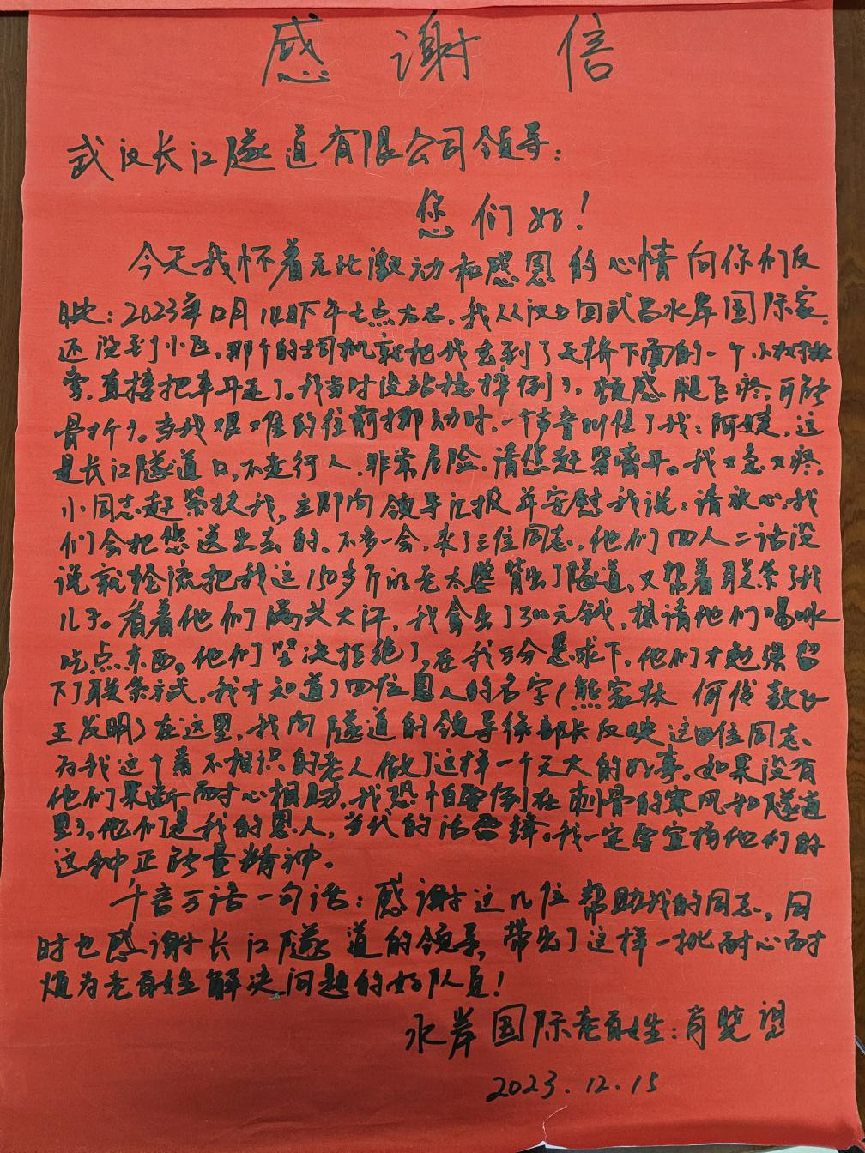 感谢信
武汉长江隧道有限公司领导：
您们好！
今天我怀着无比激动和感恩的心情向你们反
映：2023年12月14日下午七点左右，我从汉口回武昌水岸国际家，
还没到小区，那个的士司机就把我丢到了天桥下面的一个小树林
旁，直接把车开走了。我当时没站稳摔倒了，顿感腿飞疼，可能
骨折了。当我艰难的往前挪动时，一个声音叫住了我：阿姨，这
是长江隧道口，不走行人，非常危险，请您赶紧离开。我又急又疼，
小同志赶紧扶我，立即向领导汇报并安慰我说：请放心，我
们会把您送出去的。不多一会，来了三位同志，他们四人二话没
说就轮流把我这150多斤的老太婆背出了隧道，又帮着联系了我
儿子。看着他们满头大汗，我拿出了300元钱，想请他们喝水
吃点东西，他们坚决拒绝了，在我万分恳求下，他们才勉强留
下了联系方式，我才知道了四位恩人的名字（熊家林 何俊
王发明）在这里，我向隧道的领导徐部长反映这四位同志，
为我这个素不相识的老人做了这样一个天大的好事。如果没有
他们果断耐心相助，我恐怕要倒在刺骨的寒风和隧道
里了，他们是我的恩人，当代的活雷锋。我一定要宣扬他们的
这种正能量精神。
千言万语一句话：感谢这几位帮助我的同志，同
时也感谢长江隧道的领导，带出了这样一批耐心耐
烦为老百姓解决问题的好队员！
水岸国际老百姓：肖
2023.12.15